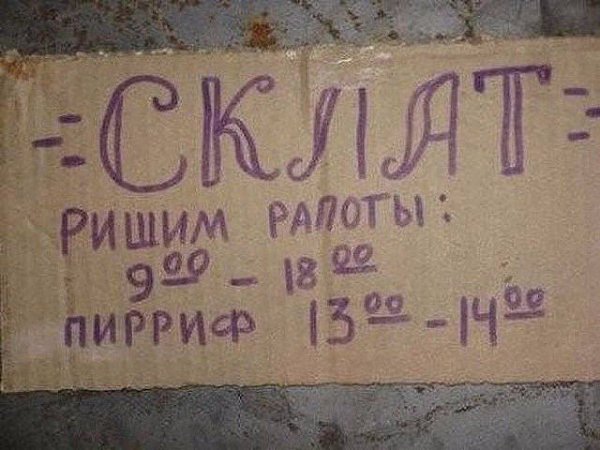 =СКЛАТ=
РИШИМ РАПОТЫ:
9⁰⁰ - 18⁰⁰
ПИРРИФ 13⁰⁰ - 14⁰⁰